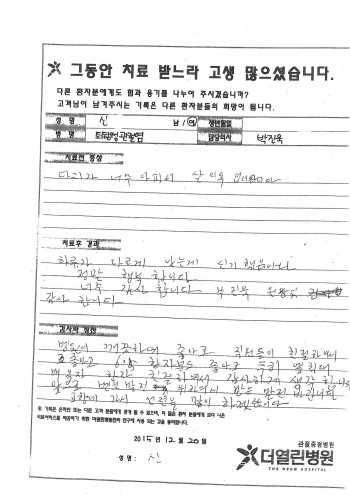 그동안 치료 받느라 고생 많으셨습니다.
다른 환자분에게도 힘과 용기를 나누어 주시겠습니까?
고객님이 남겨주시는 기록은 다른 환자분들의 희망이 됩니다.
성 명 신 남 / 여 생년월일
병 명 퇴행성관절염 담당의사 박진욱
치료전 증상
다리가 너무 아파서 살 의욕 없어
치료후 결과
하루가 다르게 낫는게 신기했읍니다
정말 행복합니다
너무 감사 합니다 박진욱 원장님
감사 합니다
병원이 깨끗하며 직원들이 친절하며
하여 감사하게 생각
고향에 가서 선전을 많이 하겠습니다
위 기록은 온라인 또는 다른 고객 분들에게 공개 될 수 있으며, 더 많은 환자 분들에게 보다 나은
의료서비스를 제공하기 위한 더열린병원만의 연구에 사용 되는 고를 동의합니다.
2015년 12월 20일
성 명 : 신
관절중점병원
더열린병원
THE OPEN HOSPITAL